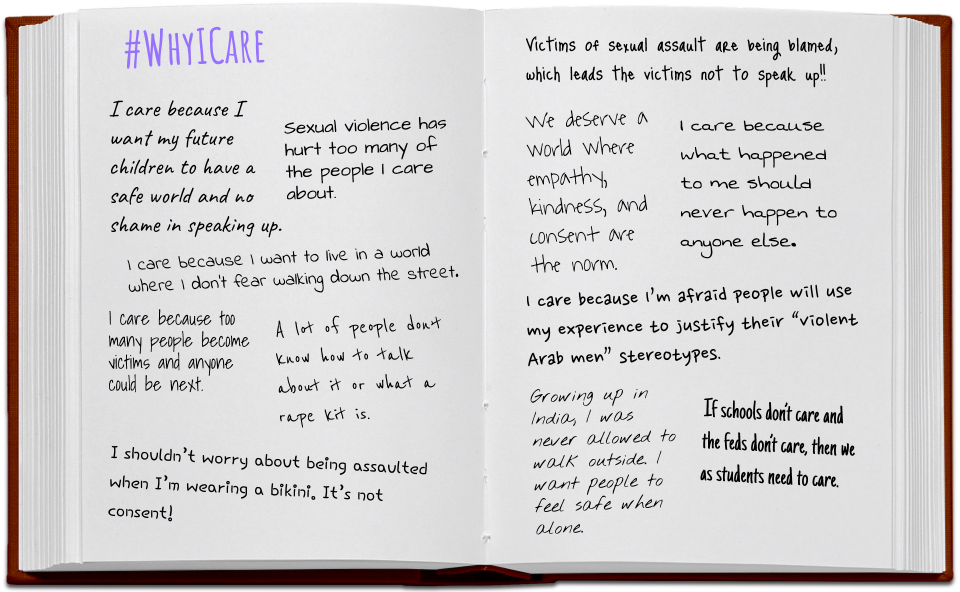 #WhyICare
I care because I
want my future
children to have a
safe world and no
shame in speaking up.
Sexual violence has
hurt too many of
the people I care
about.
I care because I want to live in a world
where I don't fear walking down the street.
I care because too
many people become
victims and anyone
could be next.
A lot of people don't
know how to talk
about it or what a
rape kit is.
I shouldn't worry about being assaulted
when I'm wearing a bikini. It's not
consent!
Victims of sexual assault are being blamed,
which leads the victims not to speak up!!
We deserve a
world where
empathy,
kindness, and
consent are
the norm.
I care because
what happened
to me should
never happen to
anyone else.
I care because I'm afraid people will use
my experience to justify their "violent
Arab men" stereotypes.
Growing up in
India, I was
never allowed to
walk outside. I
want people to
feel safe when
alone.
If schools don't care and
the feds don't care, then we
as students need to care.